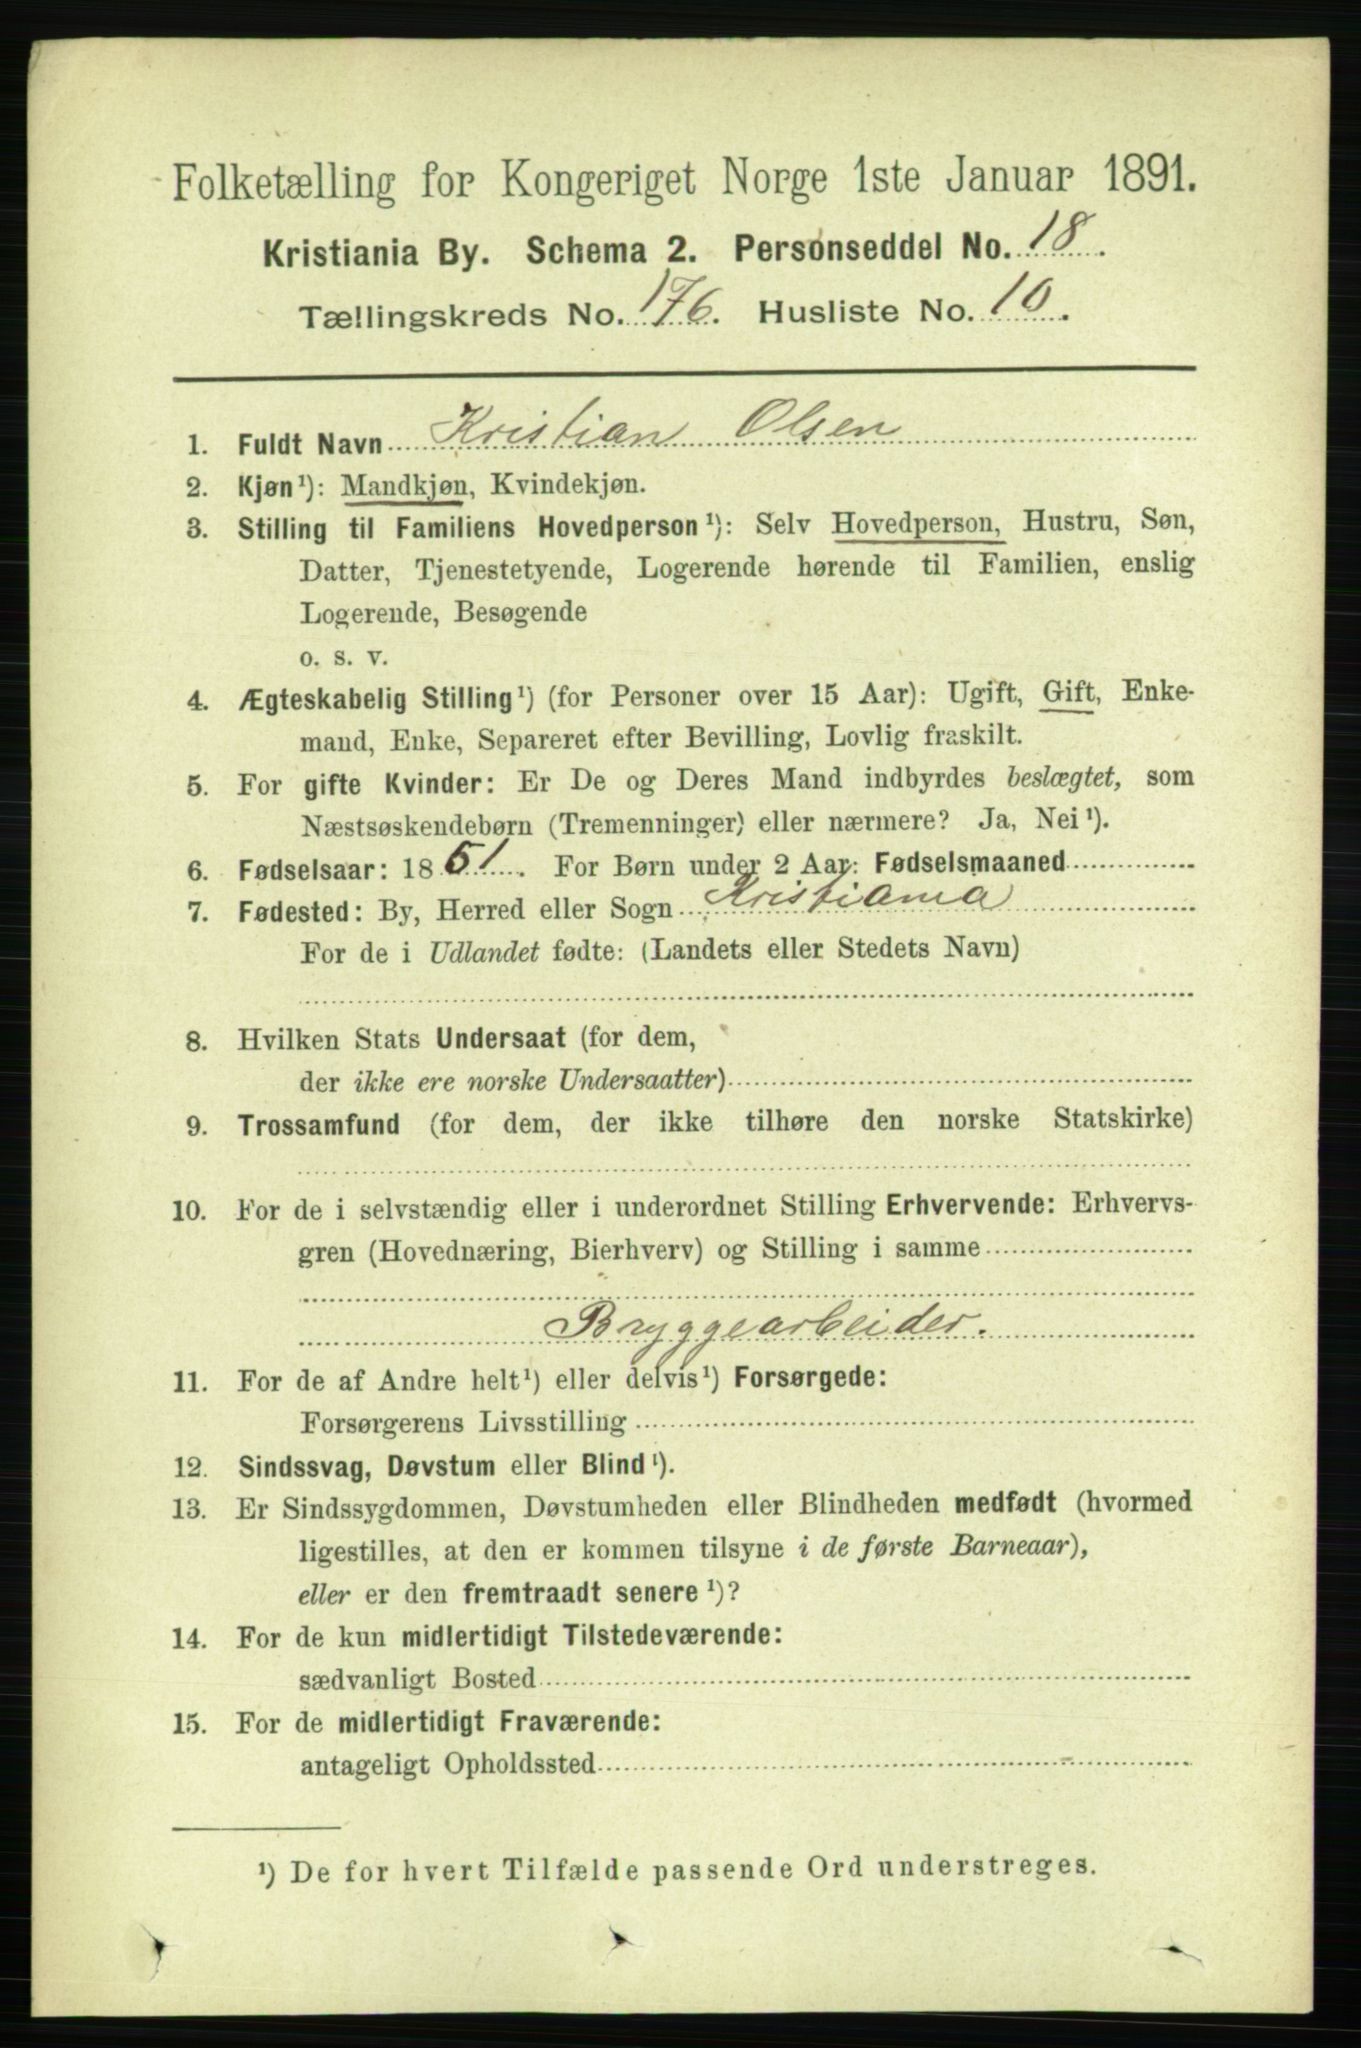 Folketælling for Kongeriget Norge 1ste Januar 1891.
Kristiania By. Schema 2. Personseddel No. 18.
Tællingskreds No. 176. Husliste No. 10.
1. Fuldt Navn Kristian Olsen
2. Kjøn¹): Mandkjøn, Kvindekjøn.
3. Stilling til Familiens Hovedperson¹): Selv Hovedperson, Hustru, Søn,
Datter, Tjenestetyende, Logerende hørende til Familien, enslig
Logerende, Besøgende
o. s. v.
4. Ægteskabelig Stilling¹) (for Personer over 15 Aar): Ugift, Gift, Enke-
mand, Enke, Separeret efter Bevilling, Lovlig fraskilt.
5. For gifte Kvinder: Er De og Deres Mand indbyrdes beslægtet, som
Næstsøskendebørn (Tremenninger) eller nærmere? Ja, Nei¹).
6. Fødselsaar: 1851. For Børn under 2 Aar: Fødselsmaaned
7. Fødested: By, Herred eller Sogn Kristiania
For de i Udlandet fødte: (Landets eller Stedets Navn)
8. Hvilken Stats Undersaat (for dem,
der ikke ere norske Undersaatter)
9. Trossamfund (for dem, der ikke tilhøre den norske Statskirke)
10. For de i selvstændig eller i underordnet Stilling Erhvervende: Erhvervs-
gren (Hovednæring, Bierhverv) og Stilling i samme
Bryggearbeider.
11. For de af Andre helt¹) eller delvis¹) Forsørgede:
Forsørgerens Livsstilling
12. Sindssvag, Døvstum eller Blind¹).
13. Er Sindssygdommen, Døvstumheden eller Blindheden medfødt (hvormed
ligestilles, at den er kommen tilsyne i de første Barneaar),
eller er den fremtraadt senere¹)?
14. For de kun midlertidigt Tilstedeværende:
sædvanligt Bosted
15. For de midlertidigt Fraværende:
antageligt Opholdssted
¹) De for hvert Tilfælde passende Ord understreges.